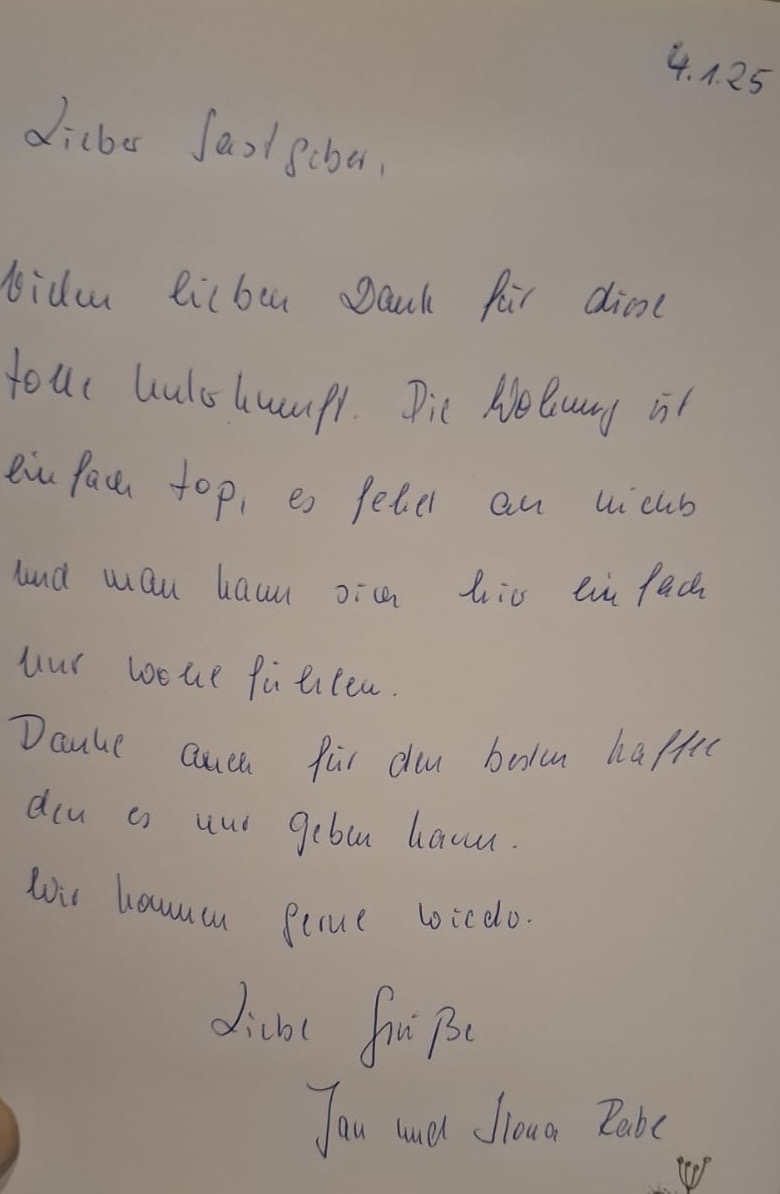 4.1.25
Lieber Gastgeber,
Vielen lieben Dank für diese
tolle Unterkunft. Die Wohnung ist
einfach top, es fehlt an nichts
und man kann sich hier einfach
nur wohl fühlen.
Danke auch für den besten Kaffee
den es nur geben kann.
Wir kommen gerne wieder.
Liebe Grüße
Jan und Ilona Rabe